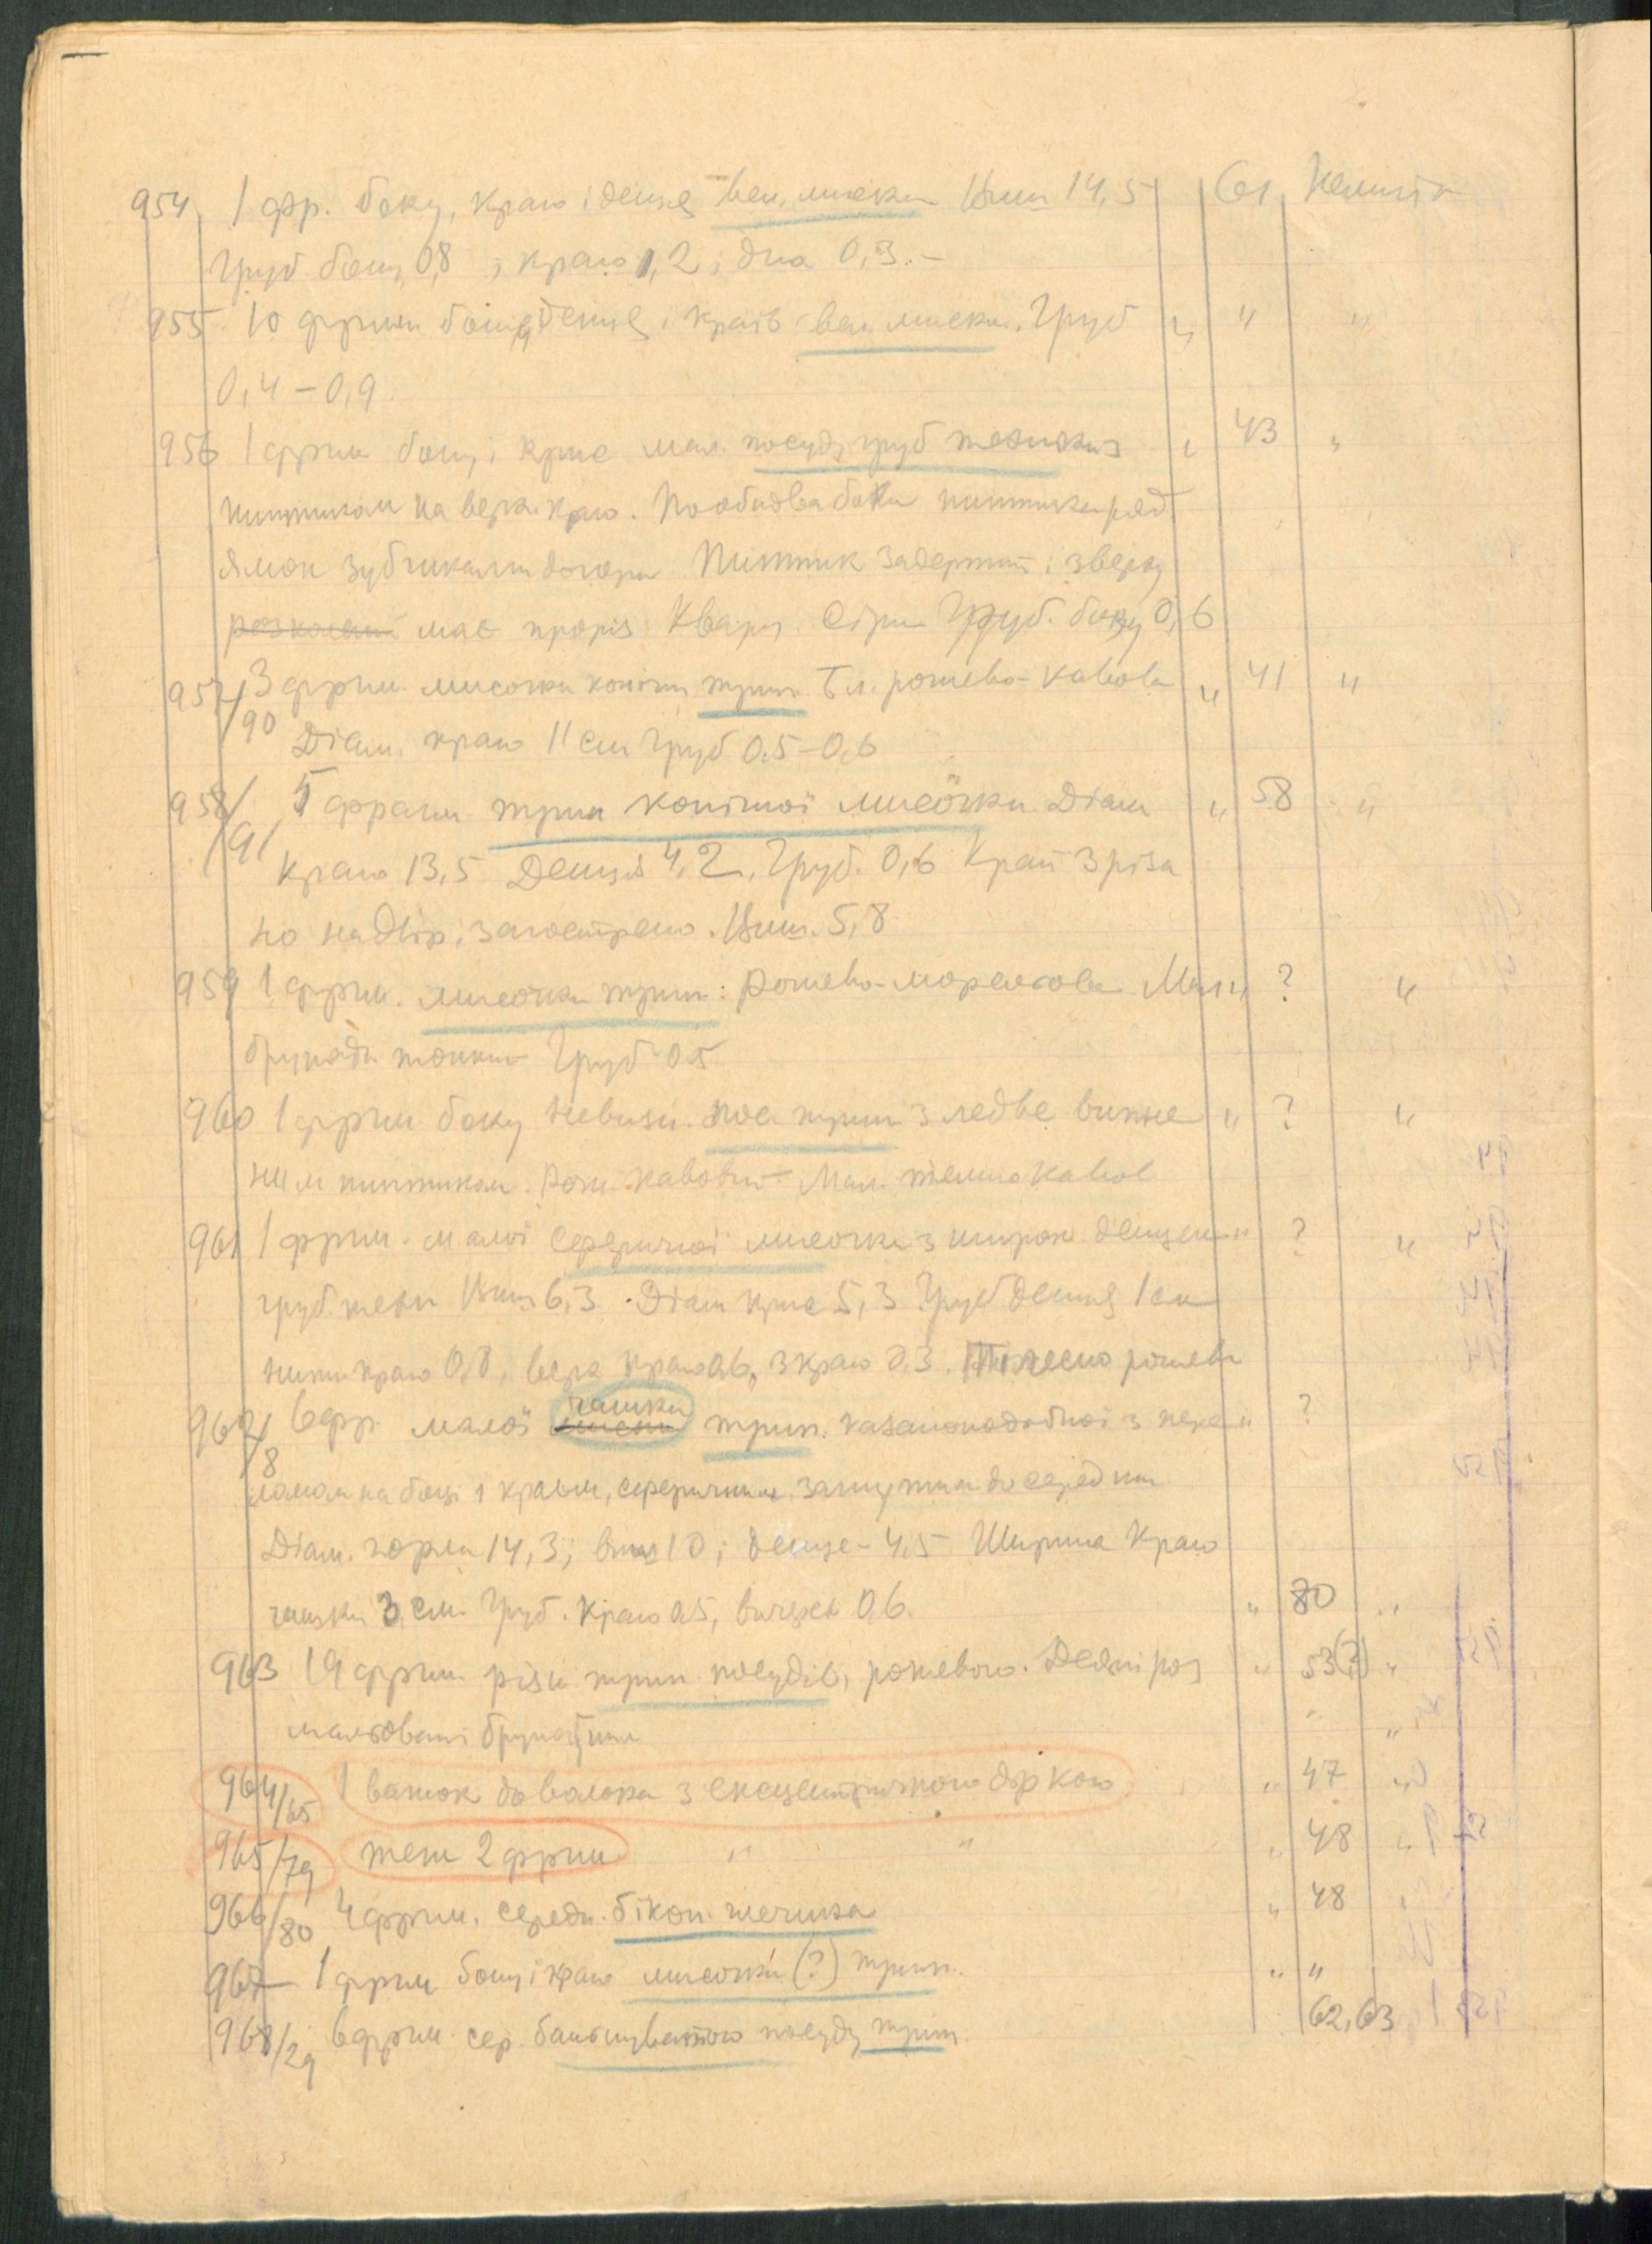 954 1 фр. боку, краю і денця вел. миски Виш 14,5 61
Груб. боку 0,8 ; краю 1,2 ; дна 0,3. –
955 10 фрагм боку, денця і країв вел миски. Груб " "
0,4 – 0,9.
956 1 фрагм боку і краю мал. посуд. груб з " 43 "
пиптиком на верха краю. По обидва боки пиптика ряд
ямок зубчиками догори Пиптик задертий і зверху
має проріз Кварц. Сіри Груб. боку 0,6
957/90 3 фрагм. мисочки конічн трип. Бл. рожево-кавова " 41 "
Діам. краю 11 см Груб 0,5–0,6
958/91 5 фрагм. трип конічної мисочки Діам " 58 "
краю 13,5 Денця 4,2. Груб. 0,6 Край зріза
но надвір, загострено. Виш. 5,8
959 1 фрагм. мисочки трип. Рожево-морелева Мал " ? "
брунатн. тонкий Груб 0.5
960 1 фрагм боку невизн. пос. трип з ледве випне " ? "
ним пиптиком. Рож. кавовий – Мал. темно кавов
961 1 фрагм. малої сферичної мисочки з широк. денцем " ? "
груб. Виш 6,3 . Діам краю 5,3 Груб денця 1 см
нижн краю 0,8, верх краю 0,6, з краю 0,3. Тілесно рожева
962/8 6 фр. малої чашки трип. казаноподобної з пере " ?
ломом на боці і краєм, сферичним загнутим до середини
Діам. горла 14,3; виш 10; денце – 4,5 Ширина краю
чашки 3 см. Груб. краю 0.5, 0,6. " 80 "
963 19 фрагм. різн трип посудів, рожевого. Деякі роз " 53(?) "
мальовані брунатним " "
964/65 1 важок до волока з ексцентричною діркою " 47 "
965/79 теж 2 фрагм " " " 48 "
966/80 4 фрагм. середн. бікон. глечика " 48 "
967 1 фрагм боку і краю мисочки (?) трип. " "
968/29 6 фрагм. сер. банькуватого посуду трип. 62,63